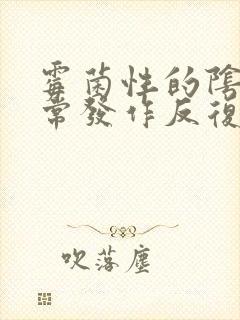 霉菌性的陰
常發作反復
吹落塵